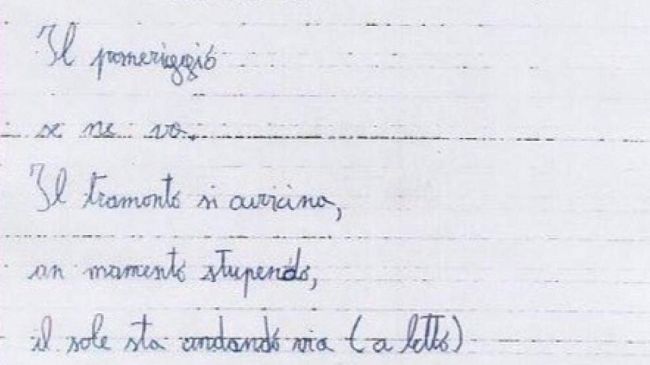 Il pomeriggio
se ne va.
Il tramonto si avvicina,
un momento stupendo,
il sole sta andando via (a letto)